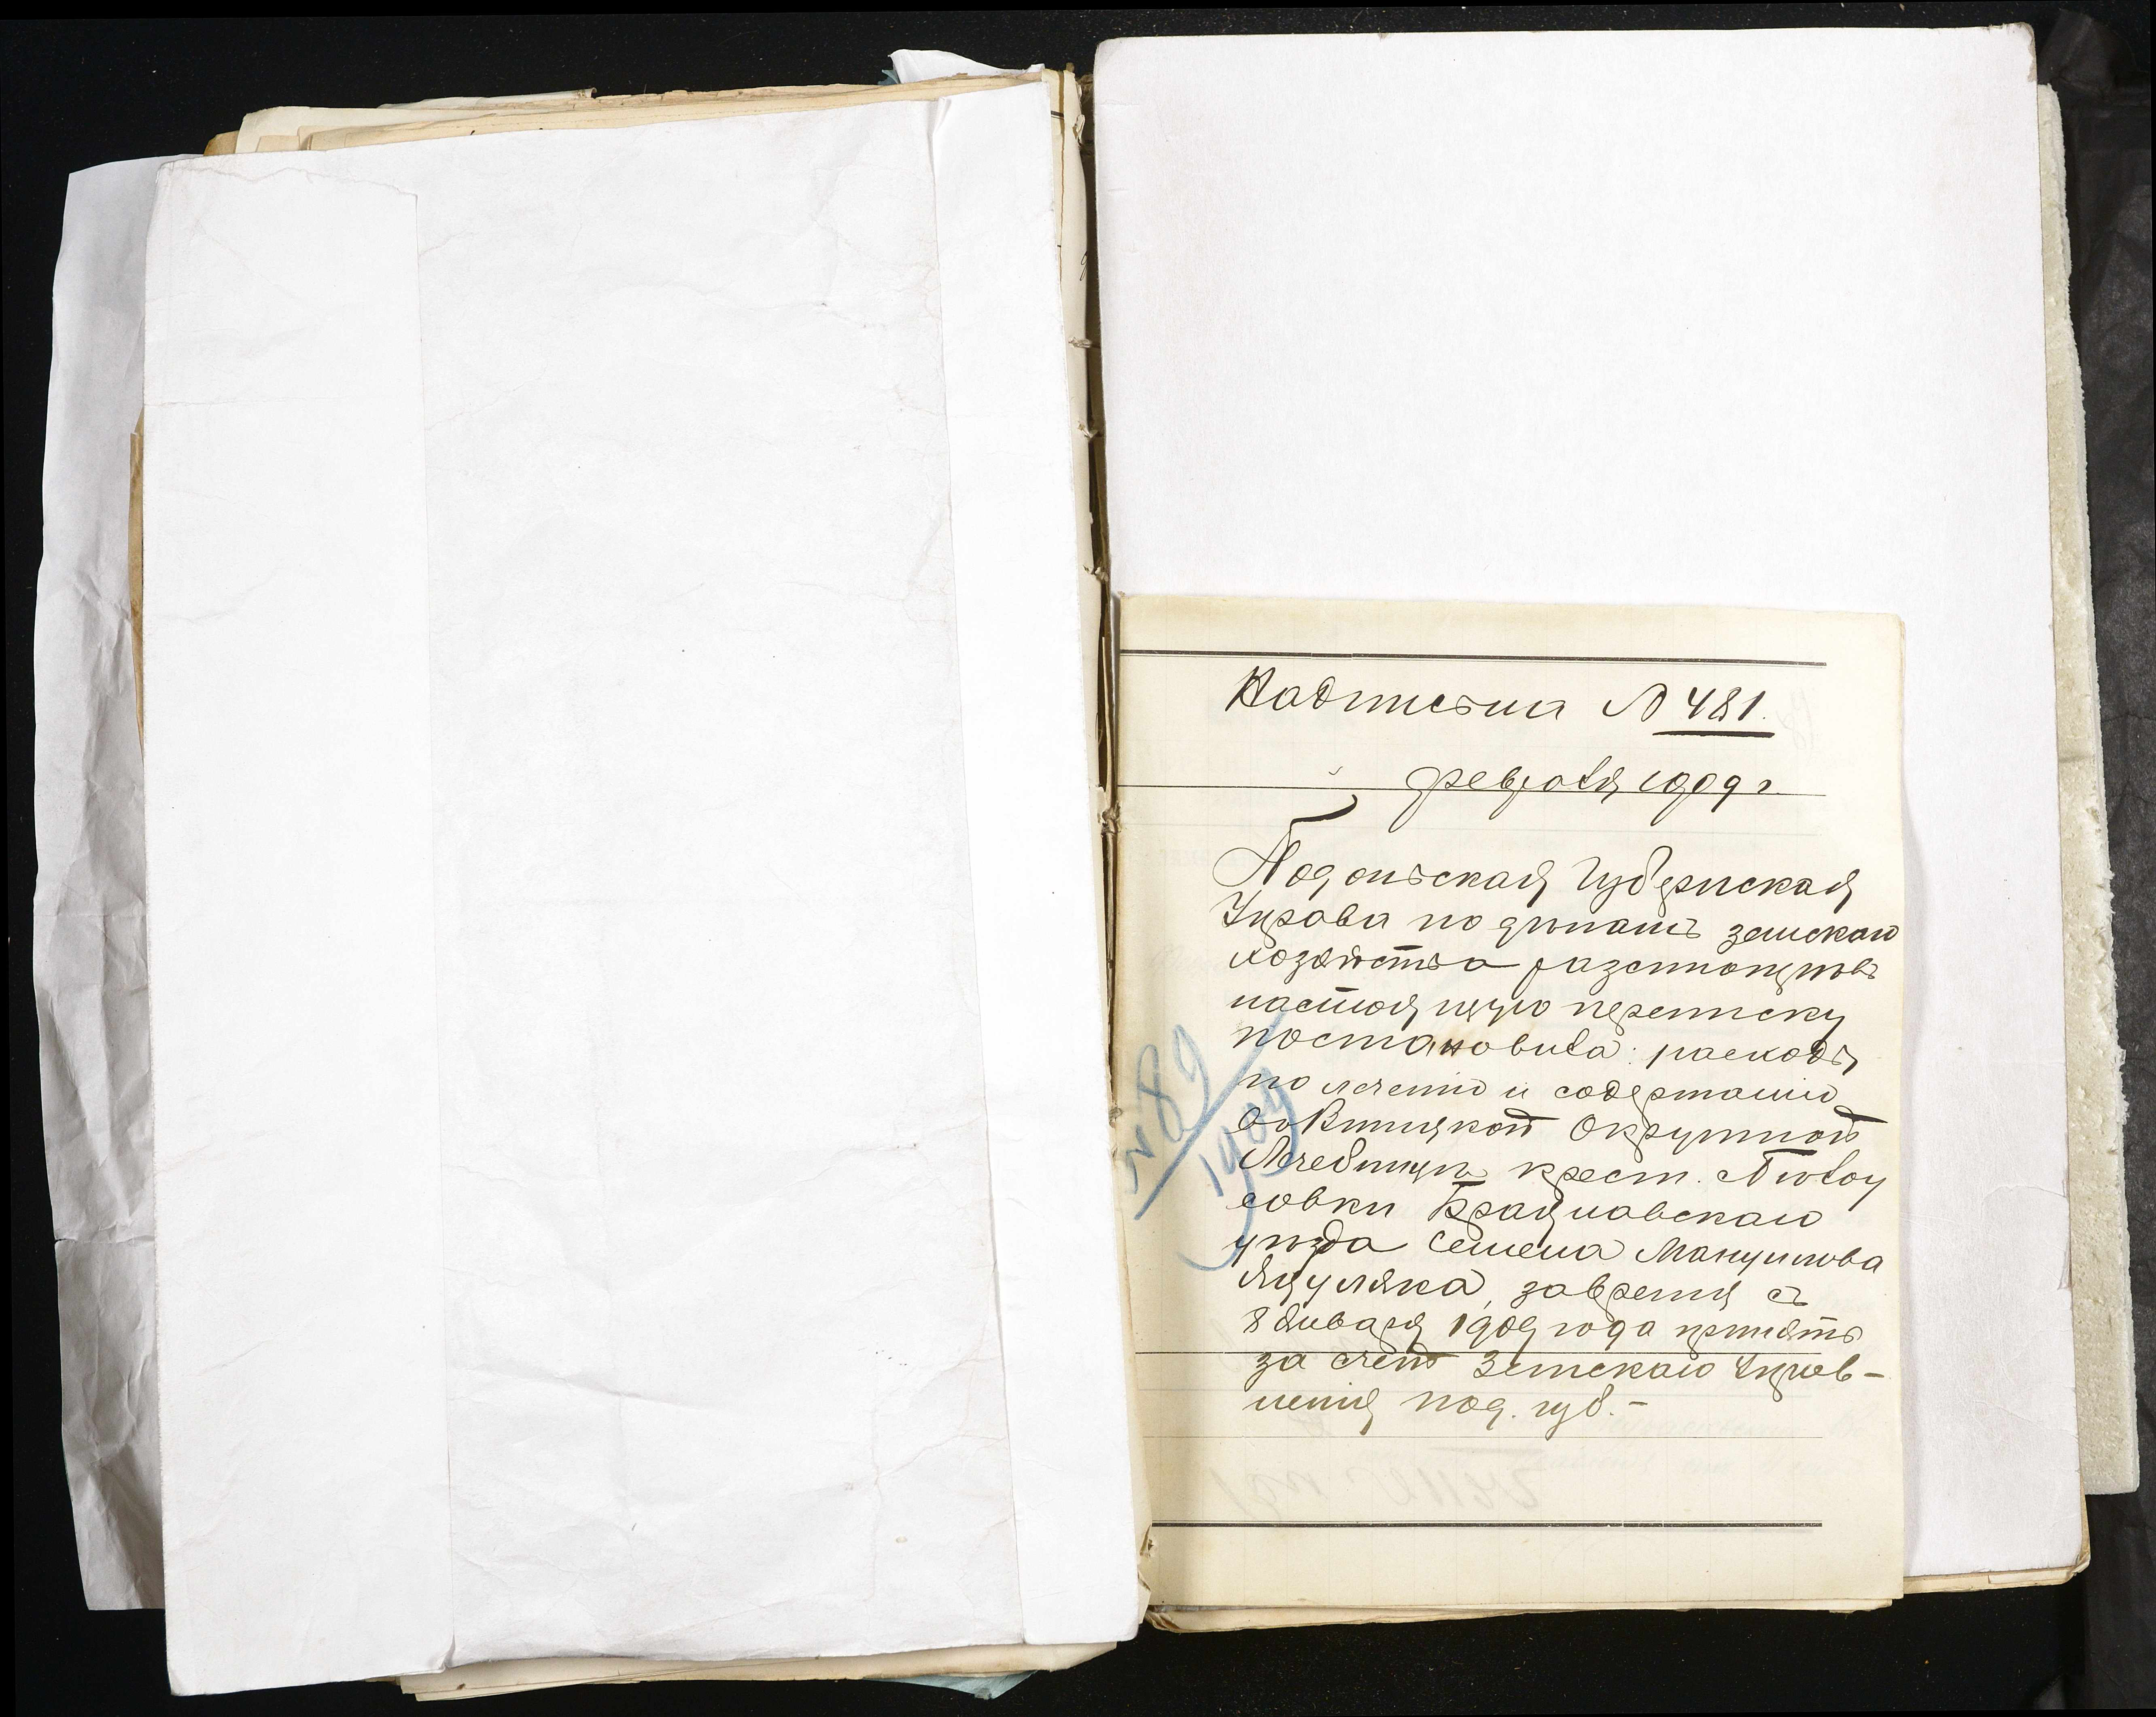 Надпись на № 481.
февраля 1909 г.
Подольская Губернская
Управа по дѣламъ земскаго
хозяйства разсмотрѣвъ
настоящую переписку
постановила: расходъ
по леченію и содержанію
въ Винницкой Окружной
Лечебницѣ крест.
совки Брацлавскаго
уѣзда Семена
за время съ
8 Января 1909 года принять
за счетъ Земскаго Управ-
ленія под. губ.-
№ 89
1909